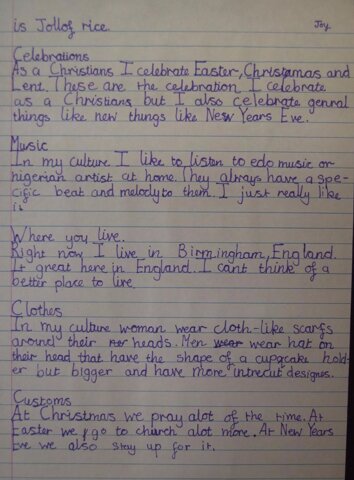 is Jollof rice.
Joy
Celebrations
As a Christians I celebrate Easter, Christamas and
Lent. These are the celebration I celebrate
as a Christians but I also celebrate genral
things like new things like New Years Eve.
Music
In my culture I like to listen to edo music or
nigerian artist at home. They always have a spe-
cific beat and melody to them. I just really like
it
Where you live.
Right now I live in Birmingham, England.
It great here in England. I cant think of a
better place to live
Clothes
In my culture woman wear cloth-like scarfs
around their heads. Men wear wear hat on
their head that have the shape of a cupcake hold-
er but bigger and have more intrecut designes.
Customs
At Christmas we pray alot of the time. At
Easter we go to church alot more. At New Years
Eve we also stay up for it.